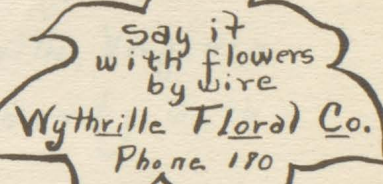 Say it
with flowers
by wire
Wythville Floral Co.
Phone 190